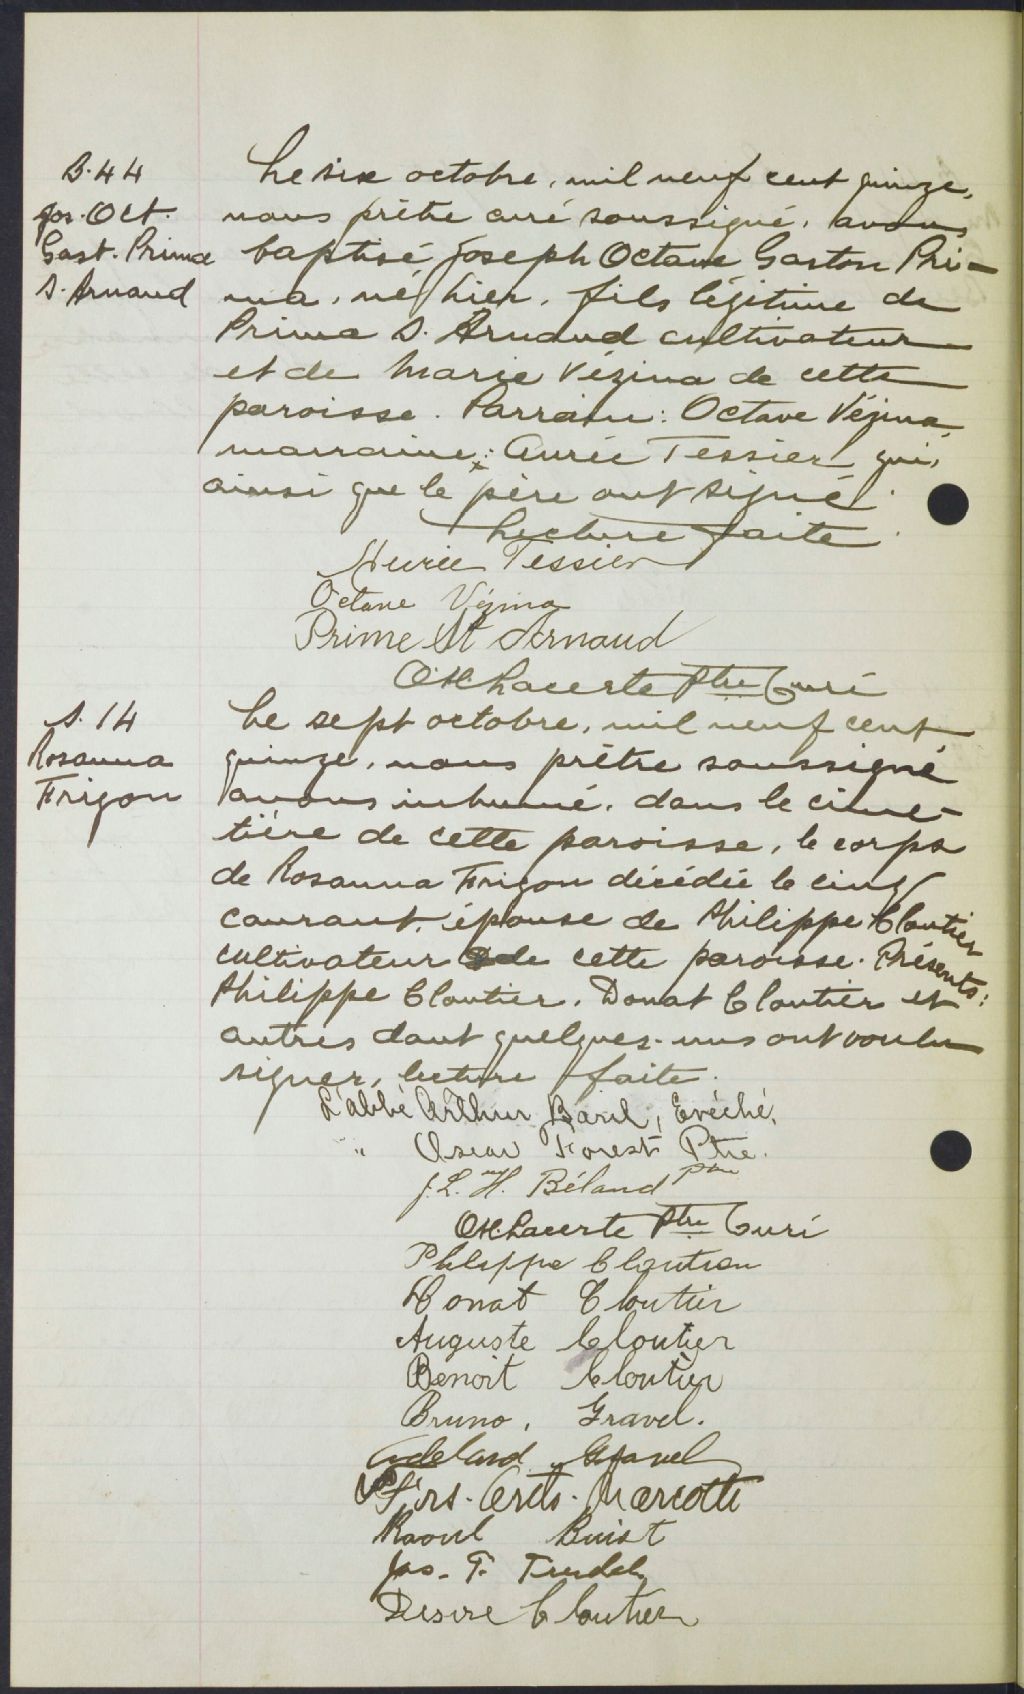 B. 44
Jos. Oct.
Gast. Prima
S. Arnaud
Le six octobre, mil neuf cent quinze,
nous prêtre curé soussigné, avons
baptisé Joseph Octave Gaston Pri-
ma, né hier, fils légitime de
Prima S. Arnaud cultivateur
et de Marie Vézina de cette
paroisse. Parrain: Octave Vézina,
marraine: Aurée Tessier qui,
ainsi que le père ont signé.
Lecture faite.
Aurée Tessier
Octave Vézina
Prime St Arnaud
Lacerte Ptre Curé
S. 14
Rosanna
Frigon
Le sept octobre, mil neuf cent
quinze, nous prêtre soussigné
avons inhumé, dans le cime-
tière de cette paroisse, le corps
de Rosanna Frigon décédée le cinq
courant, épouse de Philippe Cloutier
cultivateur de cette paroisse. Présents:
Philippe Cloutier, Donat Cloutier et
autres dont quelques-uns ont voulu
signer, lecture faite.
L'abbé Arthur Baril, Evêché,
" Oscar Forest Ptre.
J. L. H. Béland ptre
Lacerte Ptre Curé
Philippe Cloutier
Donat Cloutier
Auguste Cloutier
Benoit Cloutier
Bruno, Gravel.
Adelard Gravel
Marcotte
Raoul Buist
Jos. T. Trudel
Desire Cloutier